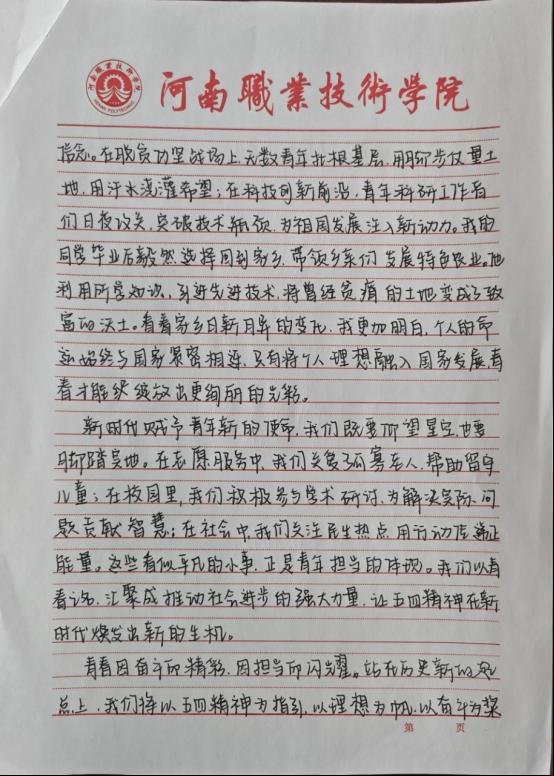 河南職業技術學院
信念。在脱贫攻坚战场上,无数青年扎根基层,用脚步丈量土
地,用汗水浇灌希望;在科技创新前沿,青年科研工作者
们日夜攻关,突破技术瓶颈,为祖国发展注入新动力。我的
同学毕业后毅然选择回到家乡,带领乡亲们发展特色农业。他
利用所学知识,引进先进技术,将曾经贫瘠的土地变成了致
富的沃土。看着家乡日新月异的变化,我更加明白,个人的命
运始终与国家紧密相连,只有将个人理想融入国家发展,青
春才能绽放出更绚丽的光彩。
新时代赋予青年新的使命,我们既要仰望星空,也要
脚踏实地。在志愿服务中,我们关爱孤寡老人,帮助留守
儿童;在校园里,我们积极参与学术研讨,为解决实际问
题贡献智慧;在社会中,我们关注民生热点,用行动传递正
能量。这些看似平凡的小事,正是青年担当的体现。我们以青
春之名,汇聚成推动社会进步的强大力量,让五四精神在新
时代焕发出新的生机。
青春因奋斗而精彩,因担当而闪耀。站在历史新的起
点上,我们将以五四精神为指引,以理想为帆,以奋斗为桨
第 页